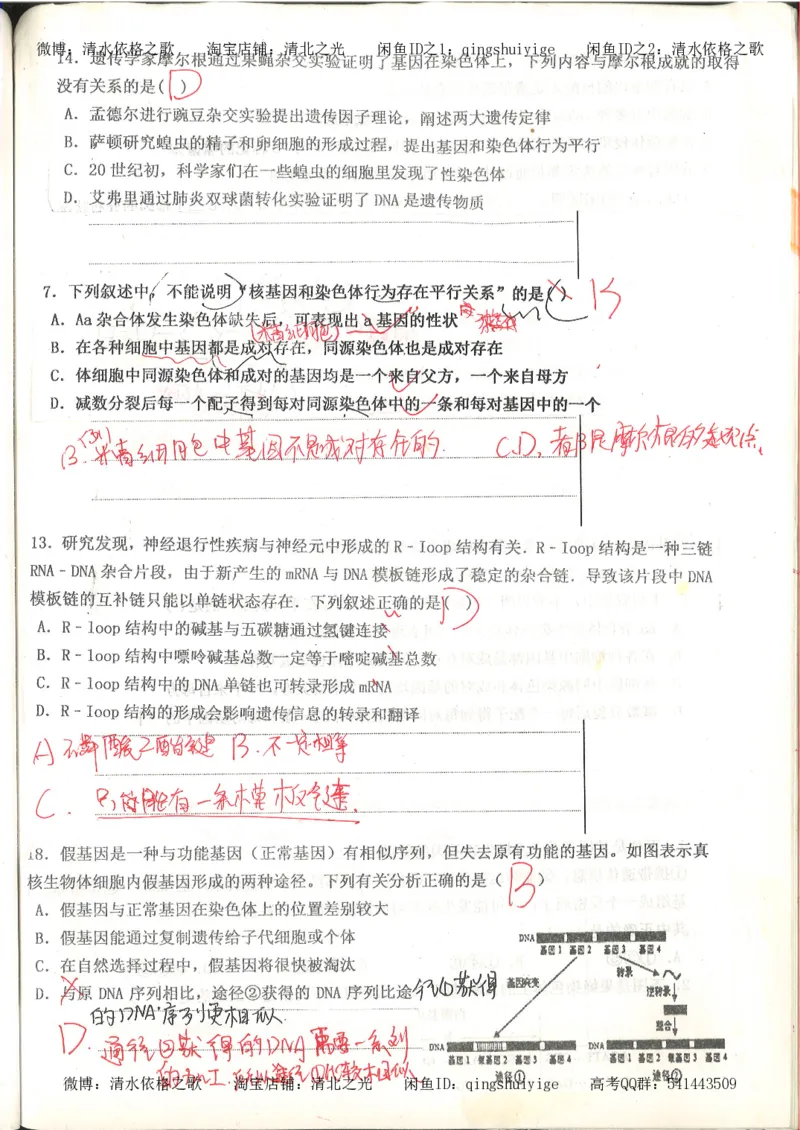 微博：清水依格之歌 淘宝店铺：清北之光 闲鱼ID之1：qingshuiyige 闲鱼ID之2：清水依格之歌
14．遗传学家摩尔根通过果蝇杂交实验证明了基因在染色体上，下列内容与摩尔根成就的取得
没有关系的是( D )
A．孟德尔进行豌豆杂交实验提出遗传因子理论，阐述两大遗传定律
B．萨顿研究蝗虫的精子和卵细胞的形成过程，提出基因和染色体行为平行
C．20 世纪初，科学家们在一些蝗虫的细胞里发现了性染色体
D．艾弗里通过肺炎双球菌转化实验证明了 DNA 是遗传物质
7．下列叙述中，不能说明“核基因和染色体行为存在平行关系”的是( ) B
A．Aa 杂合体发生染色体缺失后，可表现出 a 基因的性状
B．在各种细胞中基因都是成对存在，同源染色体也是成对存在
C．体细胞中同源染色体和成对的基因均是一个来自父方，一个来自母方
D．减数分裂后每一个配子得到每对同源染色体中的一条和每对基因中的一个
B. 精)细胞中基因不是成对存在的. C、D、都是摩尔根的
13．研究发现，神经退行性疾病与神经元中形成的 R﹣Ioop 结构有关．R﹣Ioop 结构是一种三链
RNA﹣DNA 杂合片段，由于新产生的 mRNA 与 DNA 模板链形成了稳定的杂合链．导致该片段中 DNA
模板链的互补链只能以单链状态存在．下列叙述正确的是( D )
A．R﹣loop 结构中的碱基与五碳糖通过氢键连接
B．R﹣loop 结构中嘌呤碱基总数一定等于嘧啶碱基总数
C．R﹣loop 结构中的 DNA 单链也可转录形成 mRNA
D．R﹣Ioop 结构的形成会影响遗传信息的转录和翻译
A) 磷酸二酯键 B. 不一定相等
C. 只能有一条模板链.
18．假基因是一种与功能基因（正常基因）有相似序列，但失去原有功能的基因。如图表示真
核生物体细胞内假基因形成的两种途径。下列有关分析正确的是（ B ）
A．假基因与正常基因在染色体上的位置差别较大
B．假基因能通过复制遗传给子代细胞或个体
C．在自然选择过程中，假基因将很快被淘汰
D．与原 DNA 序列相比，途径②获得的 DNA 序列比途径①获得
的DNA序列更相似.
DNA
基因1 基因2 基因3 基因4
基因突变
转录
逆转录
整合
DNA
基因1 假基因2 基因3 基因4
途径①
DNA
基因1 基因2 假基因2 基因3 基因4
途径②
D. 途径②获得的DNA需要一系列
微博：清水依格之歌 淘宝店铺：清北之光 闲鱼ID之1：qingshuiyige 高考QQ群：541443509